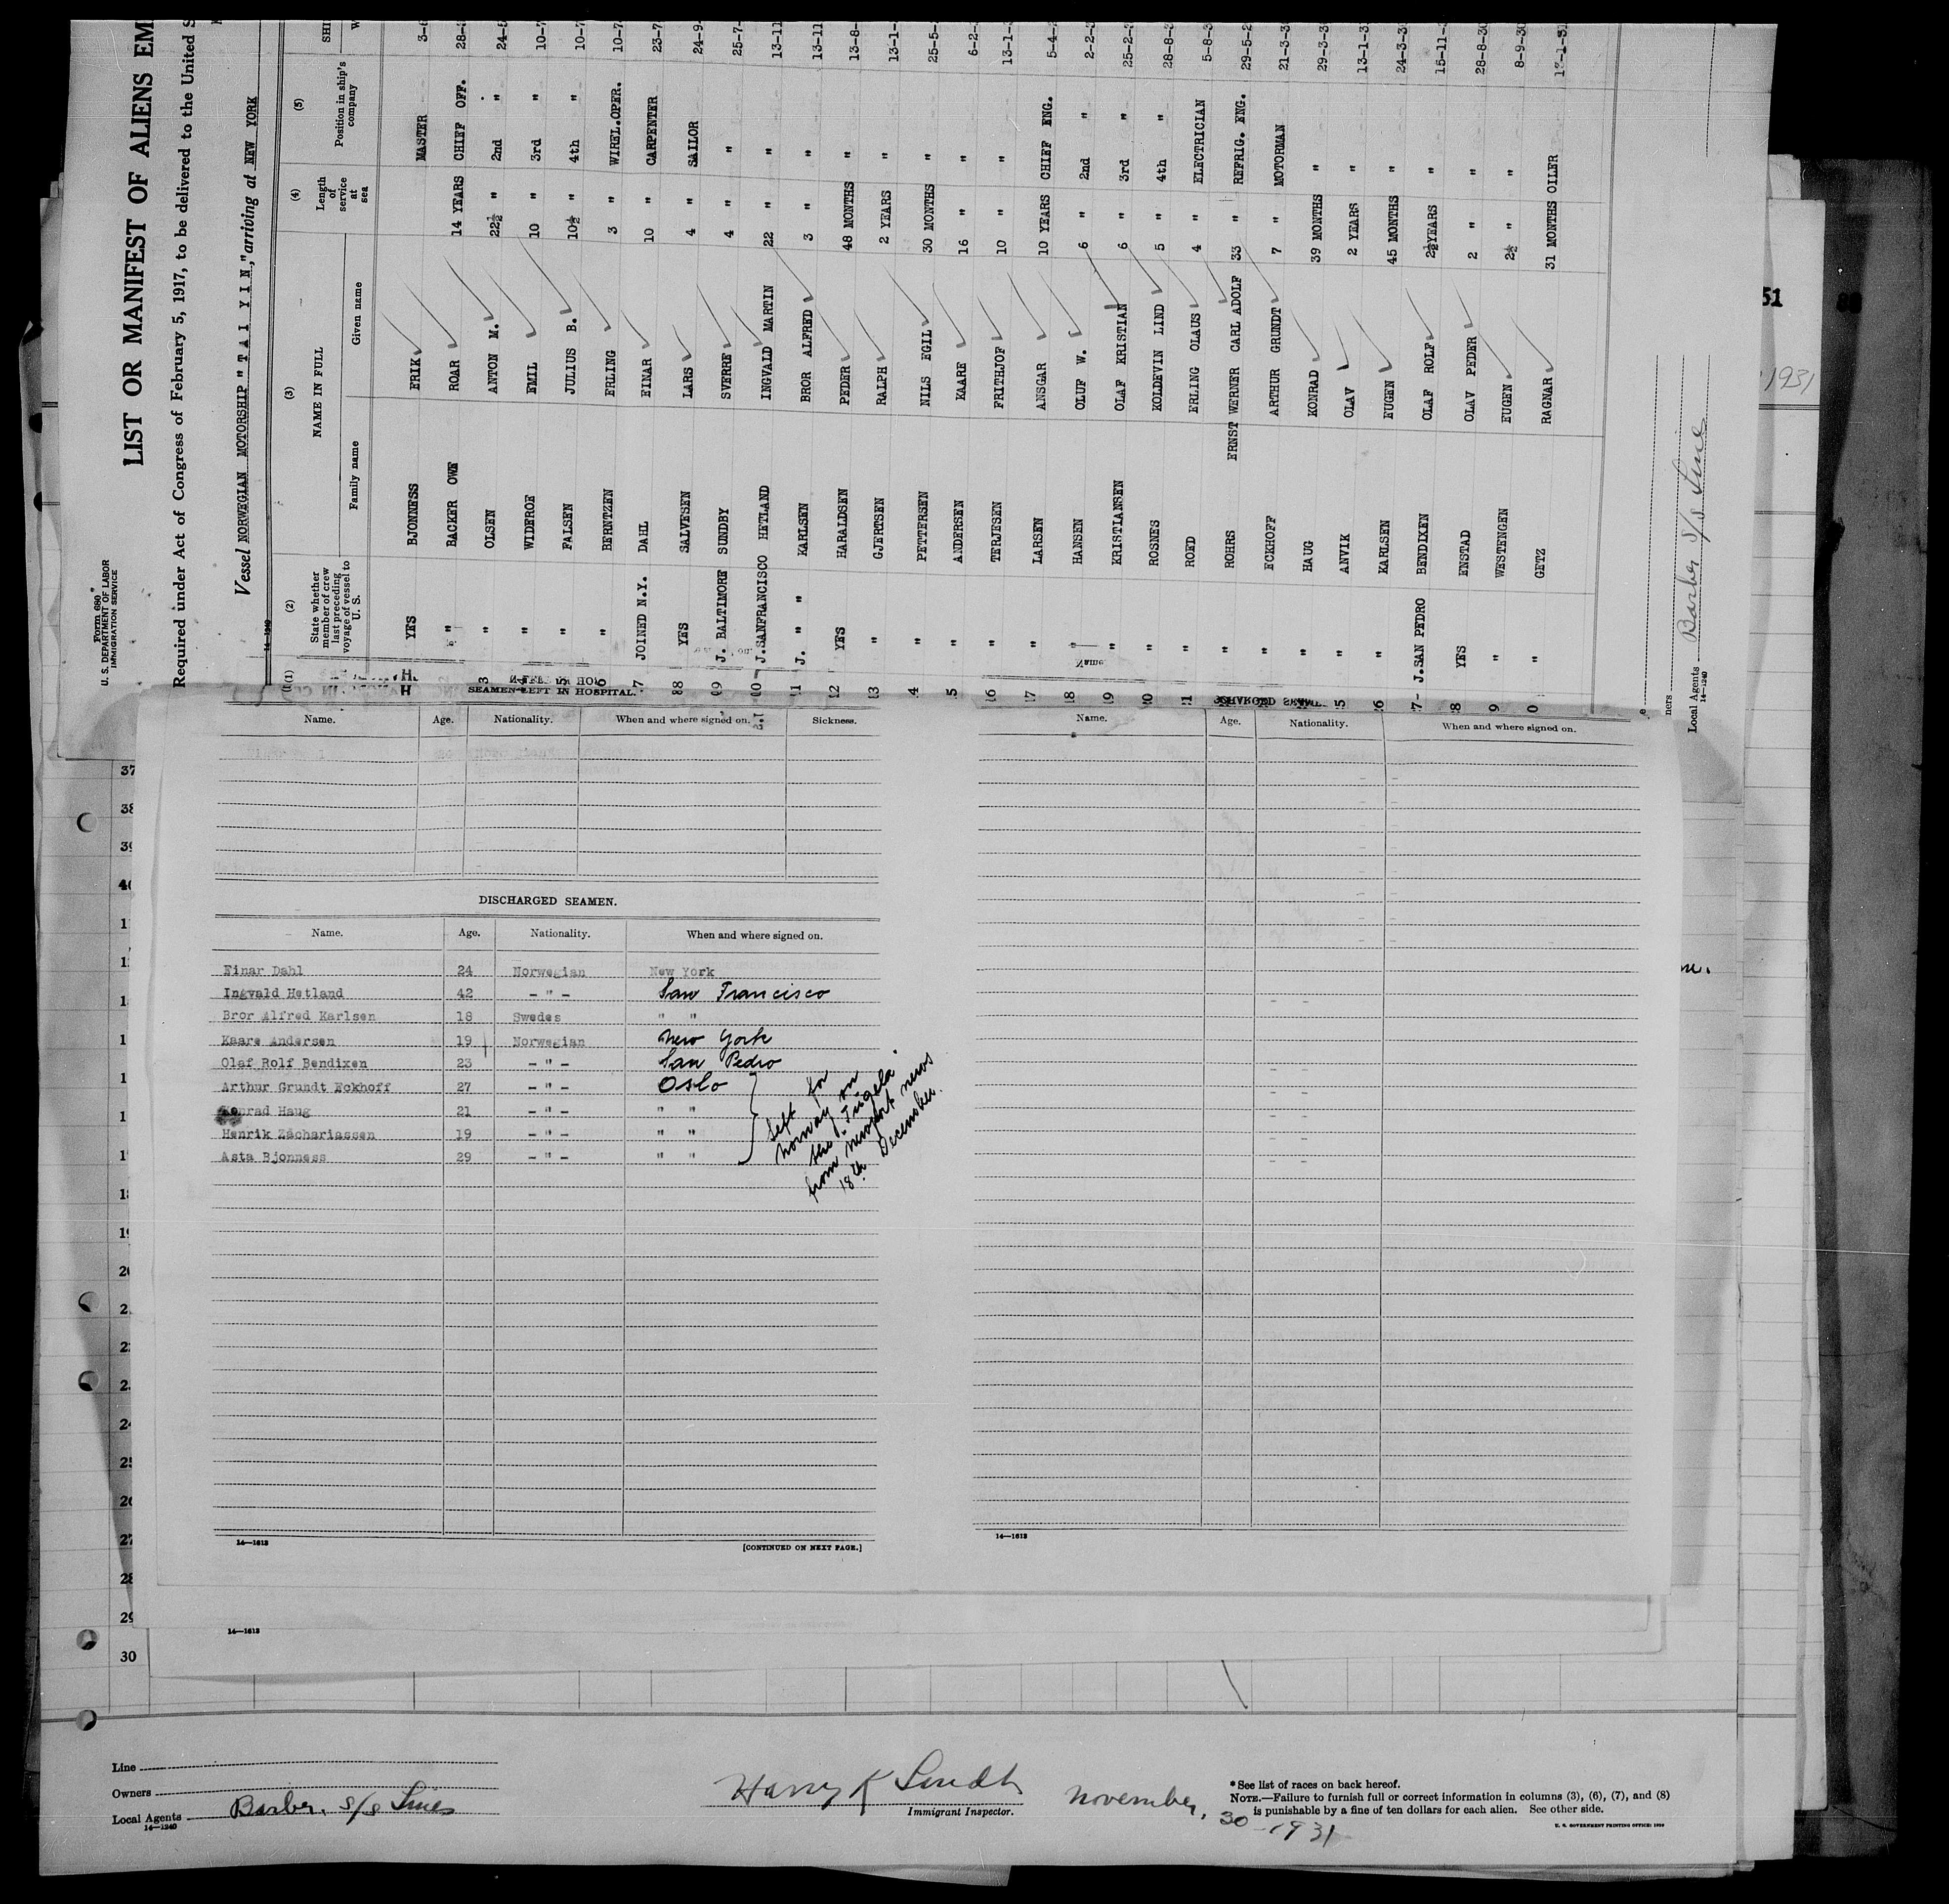 Form 680
U. S. DEPARTMENT OF LABOR
IMMIGRATION SERVICE
LIST OR MANIFEST OF ALIENS EM
Required under Act of Congress of February 5, 1917, to be delivered to the United S
Vessel NORWEGIAN MOTORSHIP "TAI YIN," arriving at NEW YORK
14—1240
(1) (2) (3) (4) (5)
State whether member of crew last preceding voyage of vessel to U. S.
NAME IN FULL
Family name Given name
Length of service at sea
Position in ship's company
SHI
W
YES BJONNESS ERIK MASTER 3-6
" BACKER OWE ROAR 14 YEARS CHIEF OFF. 28-
3 " OLSEN ANTON M. 22½ " 2nd " 24-5
4 " WIDEROE EMIL 10 " 3rd " 10-7
5 " FALSEN JULIUS B. 10½ " 4th " 10-7
6 " BERNTZEN ERLING 3 " WIREL.OPER. 10-7
7 JOINED N.Y. DAHL EINAR 10 " CARPENTER 23-7
8 YES SALVESEN LARS 4 " SAILOR 24-9
9 J. BALTIMORE SUNDBY SVERRE 4 " " 25-7
10 J.SANFRANCISCO HETLAND INGVALD MARTIN 22 " " 13-11
11 J. " " KARLSEN BROR ALFRED 3 " " 13-11
12 YES HARALDSEN PEDER 48 MONTHS " 13-8-
13 " GJERTSEN RALPH 2 YEARS " 13-1-
14 " PETTERSEN NILS EGIL 30 MONTHS " 25-5-
15 " ANDERSEN KAARE 16 " " 6-2-
16 " TERJESEN FRITHJOF 10 " " 13-1-
17 " LARSEN ANSGAR 10 YEARS CHIEF ENG. 5-4-
18 " HANSEN OLUF W. 6 " 2nd " 2-2-
19 " KRISTIANSEN OLAF KRISTIAN 6 " 3rd " 25-2-
20 " ROSNES KOLDEVIN LIND 5 " 4th " 28-8-3
21 " ROED ERLING OLAUS 4 " ELECTRICIAN 5-8-3
" ROHRS ERNST WERNER CARL ADOLF 33 " REFRIG. ENG. 29-5-2
" ECKHOFF ARTHUR GRUNDT 7 " MOTORMAN 21-3-3
" HAUG KONRAD 39 MONTHS " 29-3-3
5 " ANVIK OLAV 2 YEARS " 13-1-3
6 " KARLSEN EUGEN 45 MONTHS " 24-3-3
7 J.SAN PEDRO BENDIXEN OLAF ROLF 2½YEARS " 15-11-
8 YES ENSTAD OLAV PEDER 2 " " 28-8-30
9 " WESTENGEN EUGEN 2½ " " 8-9-30
0 " GETZ RAGNAR 31 MONTHS OILER
ners
Local Agents Barber S/S Line
14—1240
51
1931
SEAMEN LEFT IN HOSPITAL.
Name. Age. Nationality. When and where signed on. Sickness.
Name. Age. Nationality. When and where signed on.
DISCHARGED SEAMEN.
Name. Age. Nationality. When and where signed on.
Einar Dahl 24 Norwegian New York
Ingvald Hetland 42 - " - San Francisco
Bror Alfred Karlsen 18 Swedes " "
Kaare Andersen 19 Norwegian New York
Olaf Rolf Bendixen 23 - " - San Pedro
Arthur Grundt Eckhoff 27 - " - Oslo
Konrad Haug 21 - " - " "
Henrik Zachariassen 19 - " - " "
Asta Bjonness 29 - " - " "
Left for
Norway on
the "Tugela"
from Newport News
18th December.
14—1613
[CONTINUED ON NEXT PAGE.]
14—1613
14—1613
37
38
39
18
19
22
24
25
27
28
29
30
Line
Owners
Local Agents Barber, S/S Lines
14—1240
Immigrant Inspector.
November, 30-1931
*See list of races on back hereof.
NOTE.—Failure to furnish full or correct information in columns (3), (6), (7), and (8)
is punishable by a fine of ten dollars for each alien. See other side.
U. S. GOVERNMENT PRINTING OFFICE: 1930